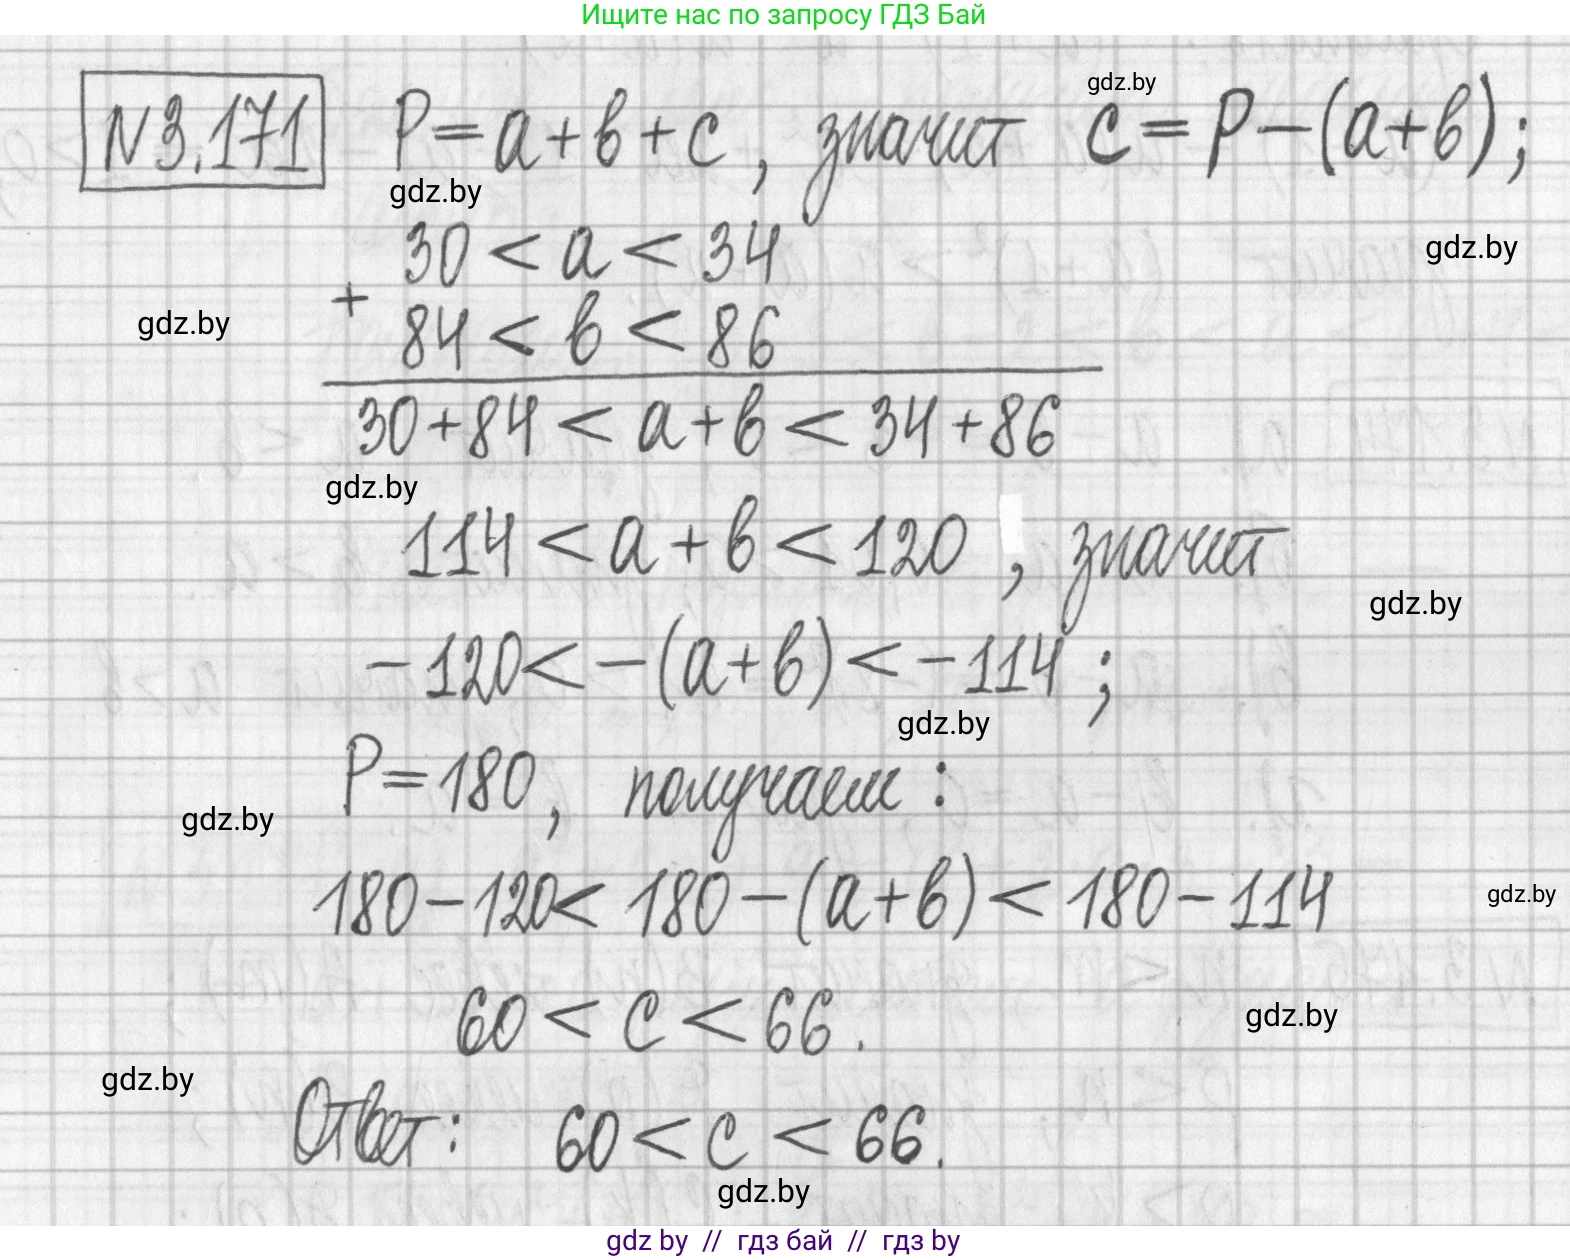 Ищите нас по запросу ГДЗ Бай
N3.171 P=a+b+c, значит c=P-(a+b);
gdz.by
gdz.by
30<a<34
gdz.by
+
84<b<86
gdz.by
30+84<a+b<34+86
gdz.by
114<a+b<120, значит
gdz.by
-120<-(a+b)<-114;
gdz.by
P=180, получаем:
gdz.by
180-120<180-(a+b)<180-114
gdz.by
60<c<66.
gdz.by
gdz.by
Ответ: 60<c<66.
gdz.by
gdz by // гдз бай // гдз by